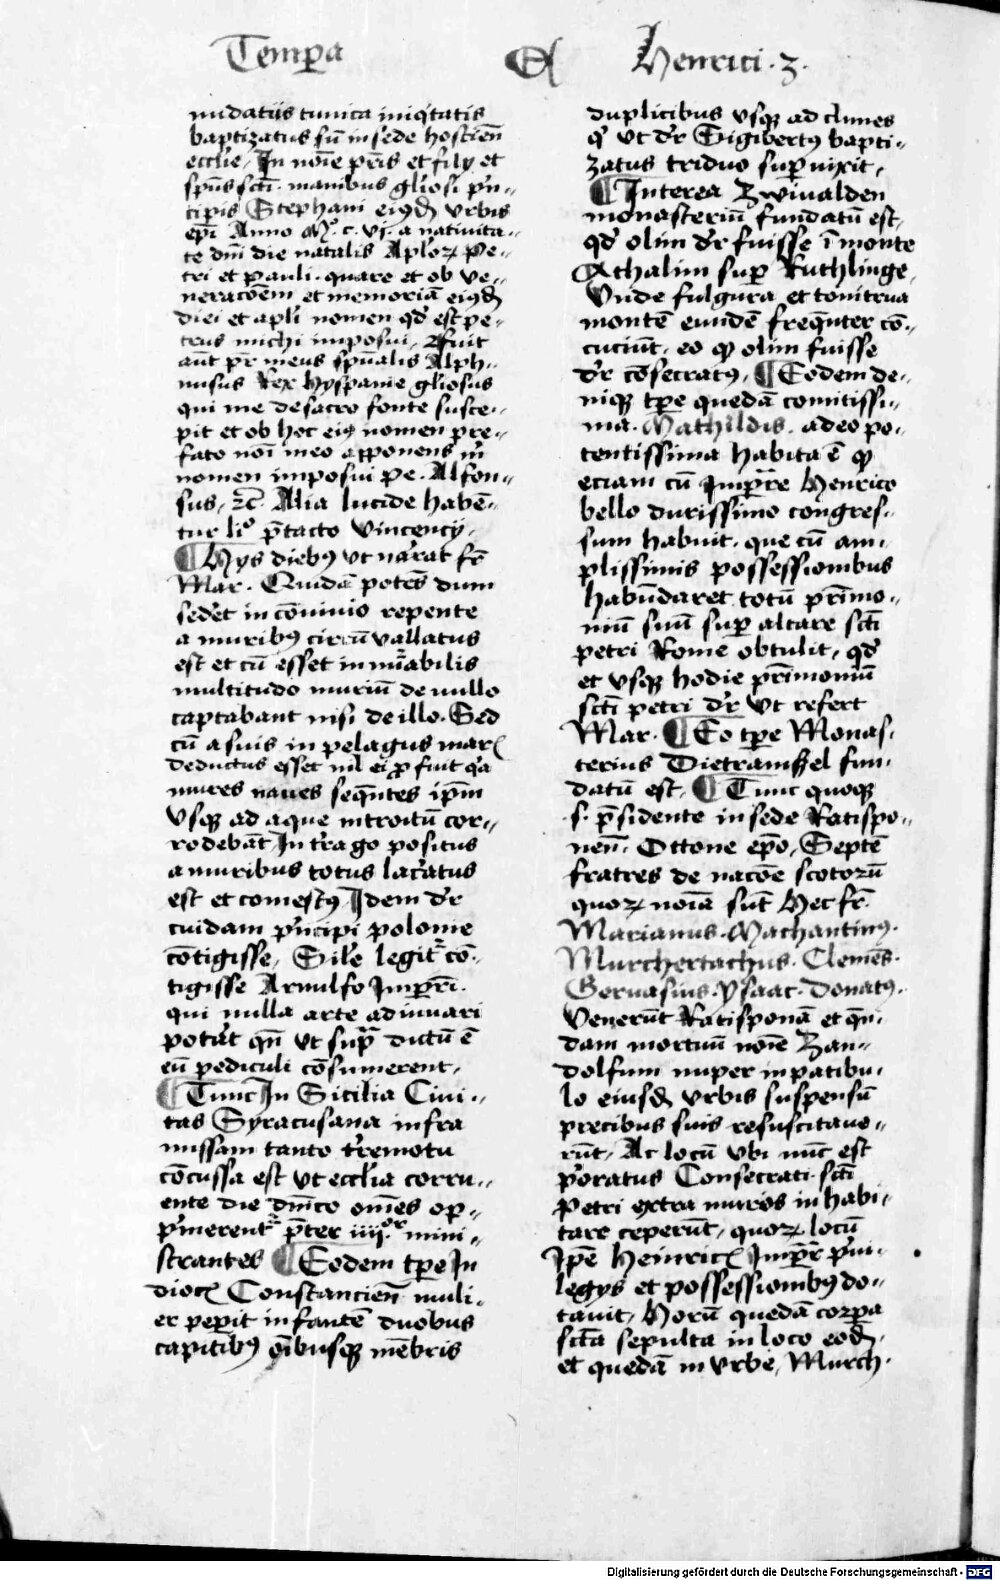 Tempa Henrici · 3 ·
nudatus tunica iniqtatis
baptizatus sū in sede hostien̄
eccl̄ie, In noīe pr̄is et filij et
sp̄us sct̄i · manibus gl̄iosi pͥn-
cipis Stephani eiusd̄ urbis
epī Anno Mͦ · c · vi · a nativita-
te dn̄i die natalis Apl̄oꝝ Pe-
tri et Pauli · quare et ob ve-
neracōem et memoriā eiusd̄
diei et apl̄i nomen qd̄ est pe-
trus michi imposui, Fuit
aūt pr̄ meus sp̄ualis Alph-
unsus Rex Hyspanie gl̄iosus
qui me de sacro fonte susce-
pit et ob hoc eiꝰ nomen pre-
fato noī meo apponens m̄
nomen imposui Pe · Alfon-
sus, ⁊c̄ · Alia lucide habē-
tur liͦ p̄tacto Vincencij,
¶ Hys diebꝰ ut narat fr̄
Mar · Quidā potēs dum
sedet in cōuiuio repente
a muribꝰ circū vallatus
est et cū esset innuᵃbilis
multitudo muriū de nullo
captabant nisi de illo · Sed
cū a suis in pelagus marꝭ
deductus esset nil ei ꝓfuit qͣ
mures naues seqn̄tes ip̄m
Vsqꝫ ad aque introitū cor-
rodebāt, In tr̄a go positus
a muribus totus lac̄atus
est et comestꝰ, Idem dr̄
cuidam pͥncipi Polonie
cōtigisse, Sil̄e legitͬ cō-
tigisse Arnulfo Imp̄ri ·
qui nulla arte adiuuari
potūt qn̄ ut supͣ dictū ē
eū pediculi cōsumerent,
¶ Tunc In Sicilia Ciui-
tas Syracusana infra
missam tanto tr̄emotu
cōcussa est ut eccl̄ia corru-
ente die dn̄ico om̄es op-
pͥmerentͬ p̄ter iiiiᵒʳ mini-
strantes ¶ Eodem tp̄e In
diocꝭ Constancien̄ muli-
er pep̱it infantē duobus
capitibꝰ oībusqꝫ mēbris
duplicibus vsqꝫ ad clunes
qͥ ut dr̄ Sigibertꝰ bapti-
zatus triduo sup̱uixit,
¶ Interea Zwiualden
monasteriū fundatū est,
qd̄ olim dr̄ fuisse ī monte
Achalim sup̱ Ruthlinge,
Vnde fulgura et tonitrua
montē eundē freqn̄ter cō-
cuciūt, eo qͥ olim fuisse
dr̄ cōsecratꝰ, ¶ Eodem de-
niqꝫ tp̄e quedā comitissi-
ma · Mathildis · adeo po-
tentissima habita ē qͥ
eciam cū Imp̄re Henrico
bello durissimo congres-
sum habuit · que cū am-
plissimis possessionibus
habūdaret totū pr̄imo-
niū suū sup̱ altare sct̄i
petri Rome obtulit, qd̄
et vsqꝫ hodie pr̄imoniū
sct̄i petri dr̄ Vt refert
Mar · ¶ Eo tp̄e Monas-
terius Dietramszel fun-
datū est, ¶ Tunc quoqꝫ
s · p̄sidente in sede Ratispo-
nen̄ · Ottone ep̄o, Septē
fratres de nacōe scotorū
quoꝝ noīa sūt Hec fr̄
Marianus · Machantinꝰ ·
Murchertachus · Clemēs ·
Geruasius · Ysaac · Donatꝰ ·
Venerūt Ratisponā et qn-
dam mortuū noīe Zan-
dolfum nuper in patibu-
lo eiusd̄ urbis suspensū
precibus suis resuscitaue-
rūt, Ac locū vbi nūc est
pͥoratus Consecrati sct̄i
Petri extra muros inhabi-
tare ceperūt, quoꝝ locū
Ip̄e Heinricꝭ Imp̄r pͥui-
legijs et possessionibꝰ do-
tauit, Horū quedā corp̱a
sct̄a sepulta in loco eod̄,
et quedā in urbe, Murch ·
Digitalisierung gefördert durch die Deutsche Forschungsgemeinschaft - DFG